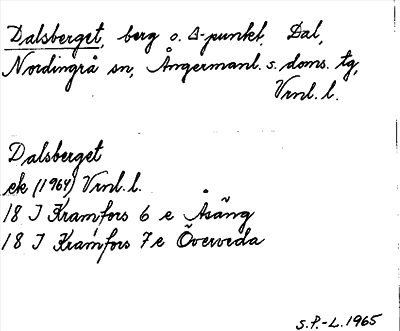 Dalsberget, berg o. Δ-punkt, Dal,
Nordingrå sn, Ångermanl. s. doms. tg,
Vrnl. l.
Dalsberget
ek (1964) Vrnl. l.
18 J Kramfors 6 e Åsäng
18 J Kramfors 7 e Överveda
S.P.-L. 1965